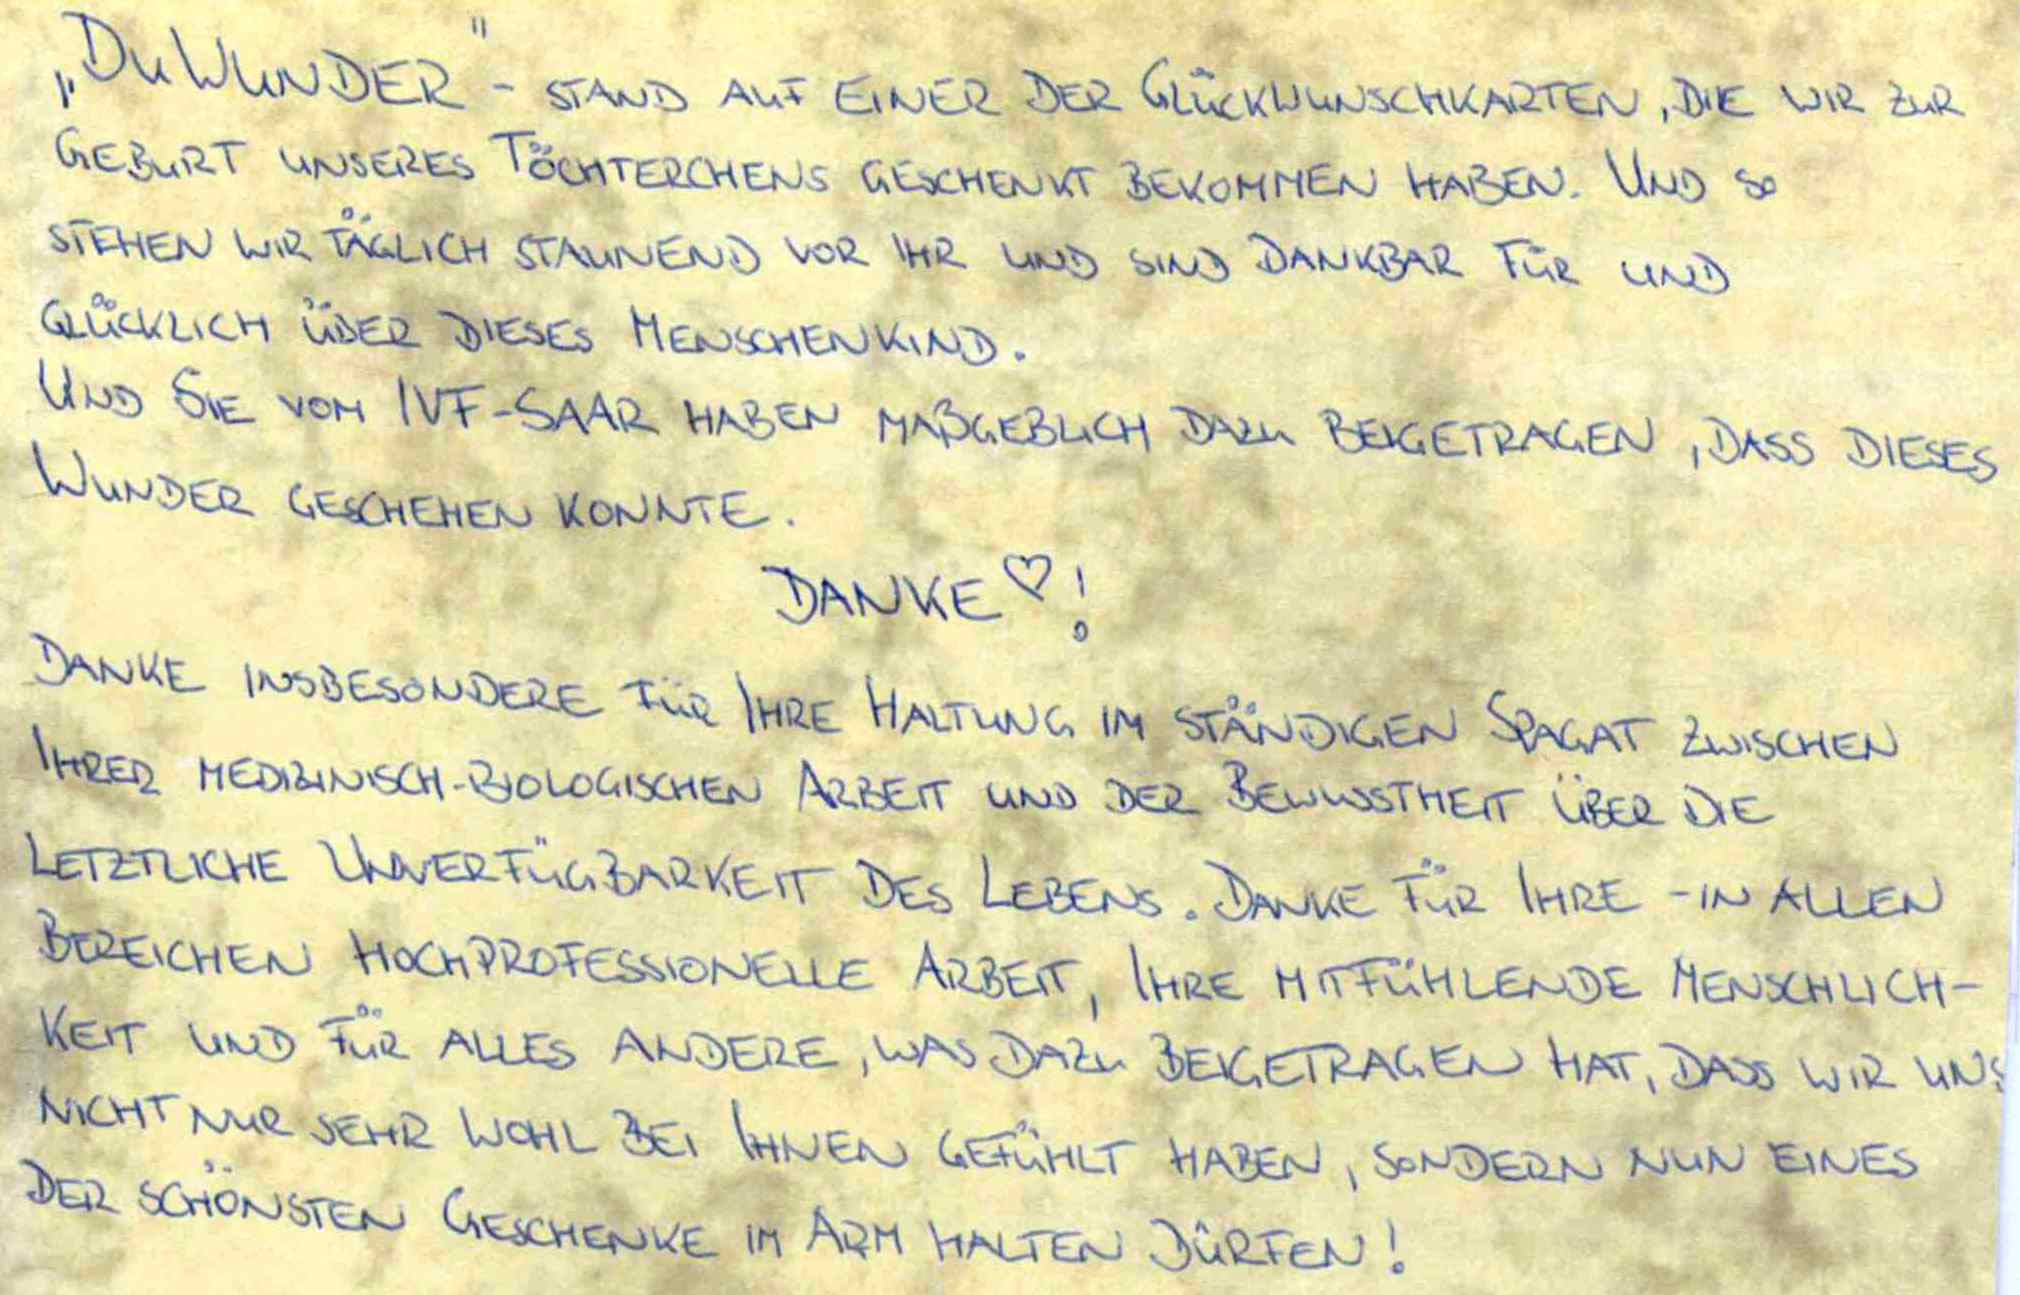 „Du Wunder" - stand auf einer der Glückwunschkarten, die wir zur
Geburt unseres Töchterchens geschenkt bekommen haben. Und so
stehen wir täglich staunend vor ihr und sind dankbar für und
glücklich über dieses Menschenkind.
Und Sie vom IVF-SAAR haben maßgeblich dazu beigetragen, dass dieses
Wunder geschehen konnte.
Danke ♡!
Danke insbesondere für Ihre Haltung im ständigen Spagat zwischen
Ihrer medizinisch-biologischen Arbeit und der Bewusstheit über die
letztliche Unverfügbarkeit des Lebens. Danke für Ihre - in allen
Bereichen hochprofessionelle Arbeit, Ihre mitfühlende Menschlich-
keit und für alles andere, was dazu beigetragen hat, dass wir uns
nicht nur sehr wohl bei Ihnen gefühlt haben, sondern nun eines
der schönsten Geschenke im Arm halten dürfen!